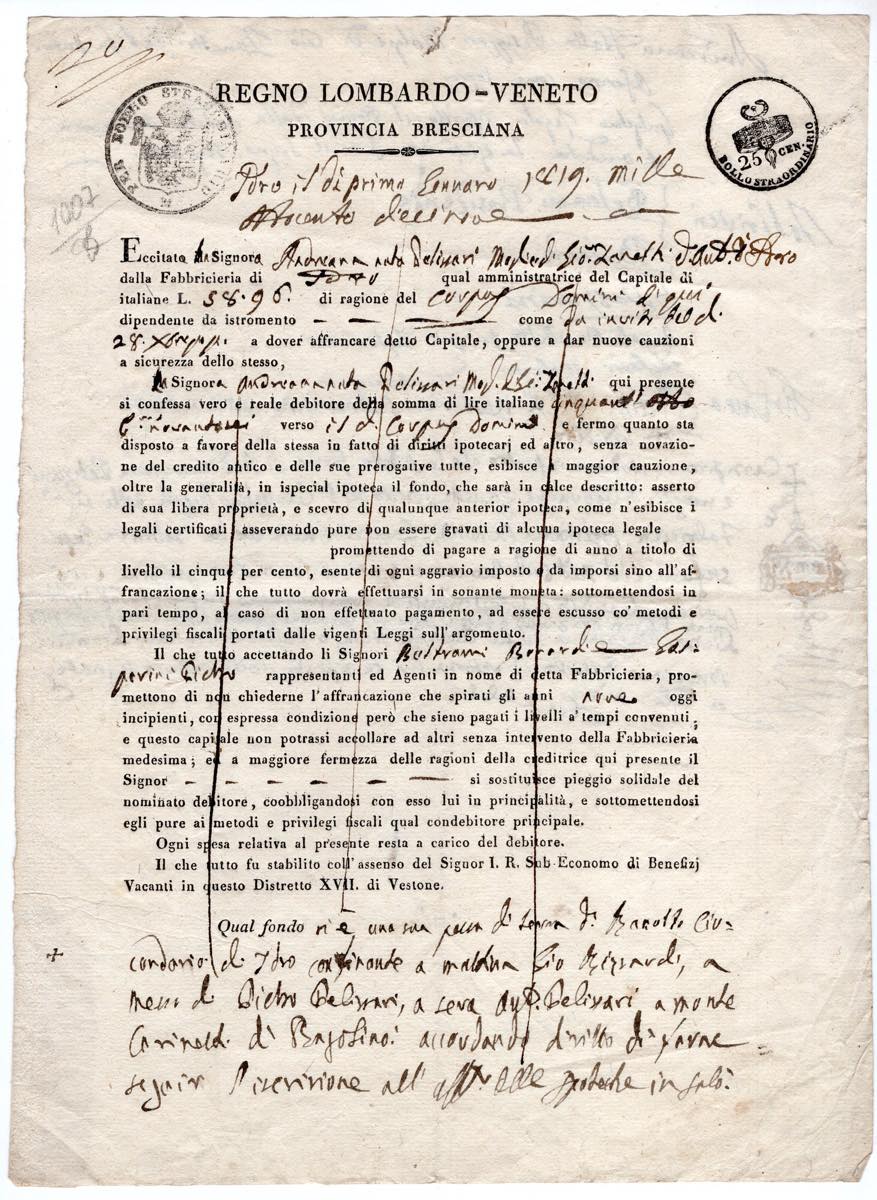 20
PER BOLLO STRAORDINARIO
REGNO LOMBARDO-VENETO
PROVINCIA BRESCIANA
25 CEN.
BOLLO STRAORDINARIO
1007
Idro il di primo Gennaro 1819. mille
ottocento decinove
Eccitata la Signora Andreana nata Belissari Moglie di Gio. Zanetti d'Ant. d'Idro
dalla Fabbricieria di Idro qual amministratrice del Capitale di
italiane L. 58.96. di ragione del Corpus Domini di qui
dipendente da istromento — — — — come da invito del d.
28. a dover affrancare detto Capitale, oppure a dar nuove cauzioni
a sicurezza dello stesso,
la Signora Andreana nata Belissari Mog. di Gio. Zanetti qui presente
si confessa vero e reale debitore della somma di lire italiane cinquant'otto
C.mi novantasei verso il d. Corpus Domini e fermo quanto sta
disposto a favore della stessa in fatto di diritti ipotecarj ed altro, senza novazio-
ne del credito antico e delle sue prerogative tutte, esibisce a maggior cauzione,
oltre la generalità, in ispecial ipoteca il fondo, che sarà in calce descritto: asserto
di sua libera proprietà, e scevro di qualunque anterior ipoteca, come n'esibisce i
legali certificati asseverando pure non essere gravati di alcuna ipoteca legale
promettendo di pagare a ragione di anno a titolo di
livello il cinque per cento, esente di ogni aggravio imposto e da imporsi sino all'af-
francazione; il che tutto dovrà effettuarsi in sonante moneta: sottomettendosi in
pari tempo, al caso di non effettuato pagamento, ad essere escusso co' metodi e
privilegi fiscali portati dalle vigenti Leggi sull'argomento.
Il che tutto accettando li Signori Beltrami Berardo e Gas-
parini Pietro rappresentanti ed Agenti in nome di detta Fabbricieria, pro-
mettono di non chiederne l'affrancazione che spirati gli anni nove oggi
incipienti, con espressa condizione però che sieno pagati i livelli a' tempi convenuti,
e questo capitale non potrassi accollare ad altri senza intervento della Fabbricieria
medesima; ed a maggiore fermezza delle ragioni della creditrice qui presente il
Signor — — — — — — si sostituisce pieggio solidale del
nominato debitore, coobbligandosi con esso lui in principalità, e sottomettendosi
egli pure ai metodi e privilegi fiscali qual condebitore principale.
Ogni spesa relativa al presente resta a carico del debitore.
Il che tutto fu stabilito coll'assenso del Signor I. R. Sub-Economo di Benefizj
Vacanti in questo Distretto XVII. di Vestone.
Qual fondo si è una sua pezza di terra d. Cir-
condario di Idro confinante a mattina Gio Rizzardi, a
mezzo d. Pietro Belissari, a sera Ant. Belissari a monte
Carinelli di Bagolino: accordando diritto di farne
seguir l'iscrizione all' delle Ipoteche in Salò.